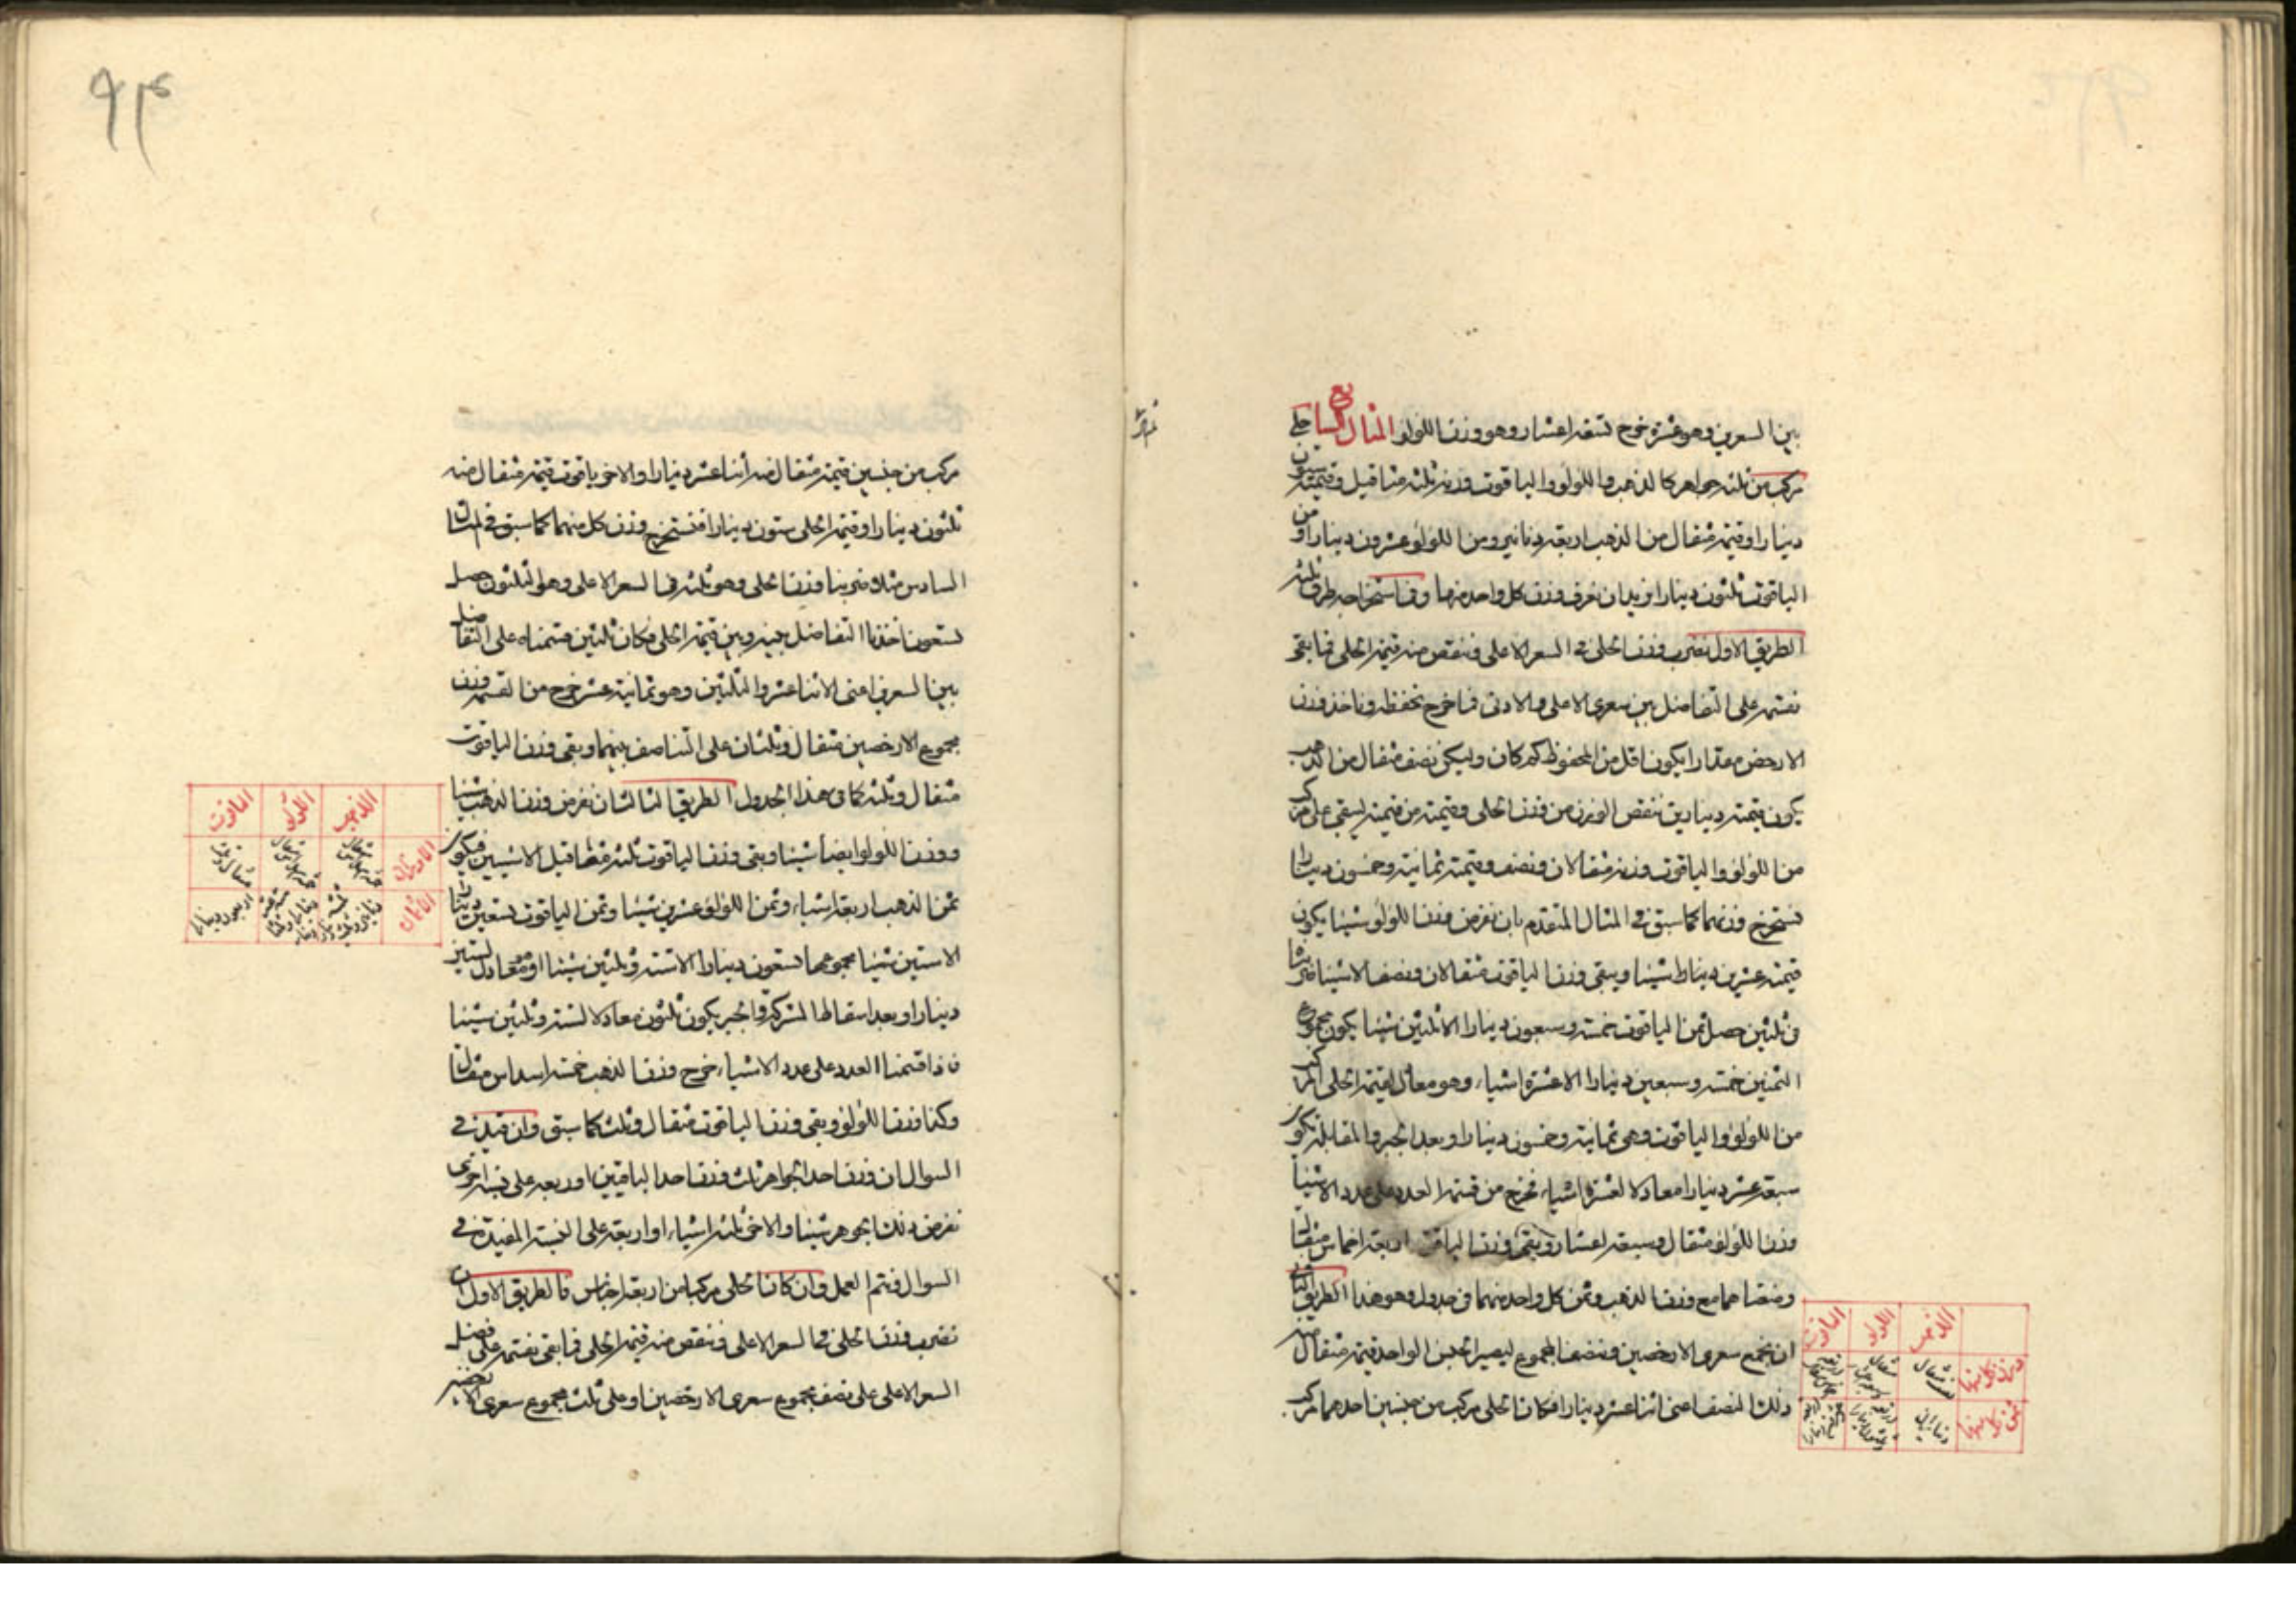 بين السعرين وهو عشرة خرج تسعة اعشار وهو وزن اللؤلؤ المثال السابع حلى
مركب من ثلثة جواهر كالذهب واللؤلؤ والياقوت وزنه ثلثة مثاقيل وقيمته ستون
دينارا وقيمة مثقال من الذهب اربعة دنانير ومن اللؤلؤ عشرون دينارا ومن
الياقوت ثلثون دينارا نريد ان نعرف وزن كل واحد منها وفى استخراجه طرق ثلثة
الطريق الاول نضرب وزن الحلى فى السعر الاعلى وننقص منه قيمة الحلى فما بقى
نقسمه على التفاضل بين سعرى الاعلى والادنى فما خرج نحفظه وناخذ وزن
الارخص مقدارا يكون اقل من المحفوظ كم كان وليكن نصف مثقال من الذهب
يكون قيمته دينارين ننقص الوزن من وزن الحلى وقيمته من قيمته ليبقى حلى مركب
من اللؤلؤ والياقوت وزنه مثقالان ونصف وقيمته ثمانية وخمسون دينارا
نستخرج وزنهما كما سبق فى المثال المتقدم بان نفرض وزن اللؤلؤ شيئا يكون
قيمته عشرين شيئا ويبقى وزن الياقوت مثقالان ونصف الا شيئا ضربنا
فى ثلثين حصل ثمن الياقوت خمسة وسبعون دينارا الا ثلثين شيئا يكون مجموع
الثمنين خمسة وسبعين دينارا الا عشرة اشياء وهو معادل لقيمة الحلى المركب
من اللؤلؤ والياقوت وهى ثمانية وخمسون دينارا وبعد الجبر والمقابلة يكون
سبعة عشر دينارا معادلا لعشرة اشياء فخرج من قسمة العدد على عدد الاشياء
وزن اللؤلؤ مثقال وسبعة اعشار ويبقى وزن الياقوت اربعة اخماس مثقال
وضعناهما مع وزن الذهب وثمن كل واحد منهما فى جدول وهو هذا الطريق الثانى
ان نجمع سعرى الارخصين وننصف المجموع ليصير الجنس الواحد قيمة مثقال منه
ذلك النصف اعنى اثنا عشر دينارا فكان الحلى مركب من جنسين احدهما مركب
الذهب اللؤلؤ الياقوت
وزن كل منها نصف مثقال
ثمن كل منها ديناران
٩٣
مركب من جنسين قيمة مثقال منه اثنا عشر دينارا والاخر ياقوت قيمة مثقال منه
ثلثون دينارا وقيمة الحلى ستون دينارا فنستخرج وزن كل منهما كما سبق فى المثال
السادس مثلا ضربنا وزن الحلى وهو ثلثة فى السعر الاعلى وهو الثلثون حصل
تسعون اخذنا التفاضل بينه وبين قيمة الحلى فكان ثلثين قسمناه على التفاضل
بين السعرين اعنى الاثنا عشر والثلثين وهو ثمانية عشر خرج من القسمة وزن
مجموع الارخصين مثقال وثلثان على التناصف بينهما وبقى وزن الياقوت
مثقال وثلث كما فى هذا الجدول الطريق الثالث ان نفرض وزن الذهب شيئا
ووزن اللؤلؤ ايضا شيئا وبقى وزن الياقوت ثلثة مثاقيل الا شيئين فيكون
ثمن الذهب اربعة اشياء وثمن اللؤلؤ عشرين شيئا وثمن الياقوت تسعين دينارا
الا ستين شيئا مجموعها تسعون دينارا الا ستة وثلثين شيئا وهو معادل لستين
دينارا وبعد اسقاط المشترك والجبر يكون ثلثون معادلا لستة وثلثين شيئا
فاذا قسمنا العدد على عدد الاشياء خرج وزن الذهب خمسة اسداس مثقال
وكذا وزن اللؤلؤ وبقى وزن الياقوت مثقال وثلث كما سبق وان قيد فى
السوال ان وزن احد الجواهر ثلث وزن احد الباقيين او ربعه على نسبة اخرى
نفرض ذلك الجوهر شيئا والاخر ثلثة اشياء او اربعة على النسبة المقيدة فى
السوال ونتم العمل وان كان الحلى مركبا من اربعة اجناس فالطريق الاول ان
نضرب وزن الحلى فى السعر الاعلى وننقص منه قيمة الحلى فما بقى نقسمه على فضل
السعر الاعلى على نصف مجموع سعرى الارخصين او على ثلث مجموع سعرى
الذهب اللؤلؤ الياقوت
الاوزان
الاثمان اربعون دينارا